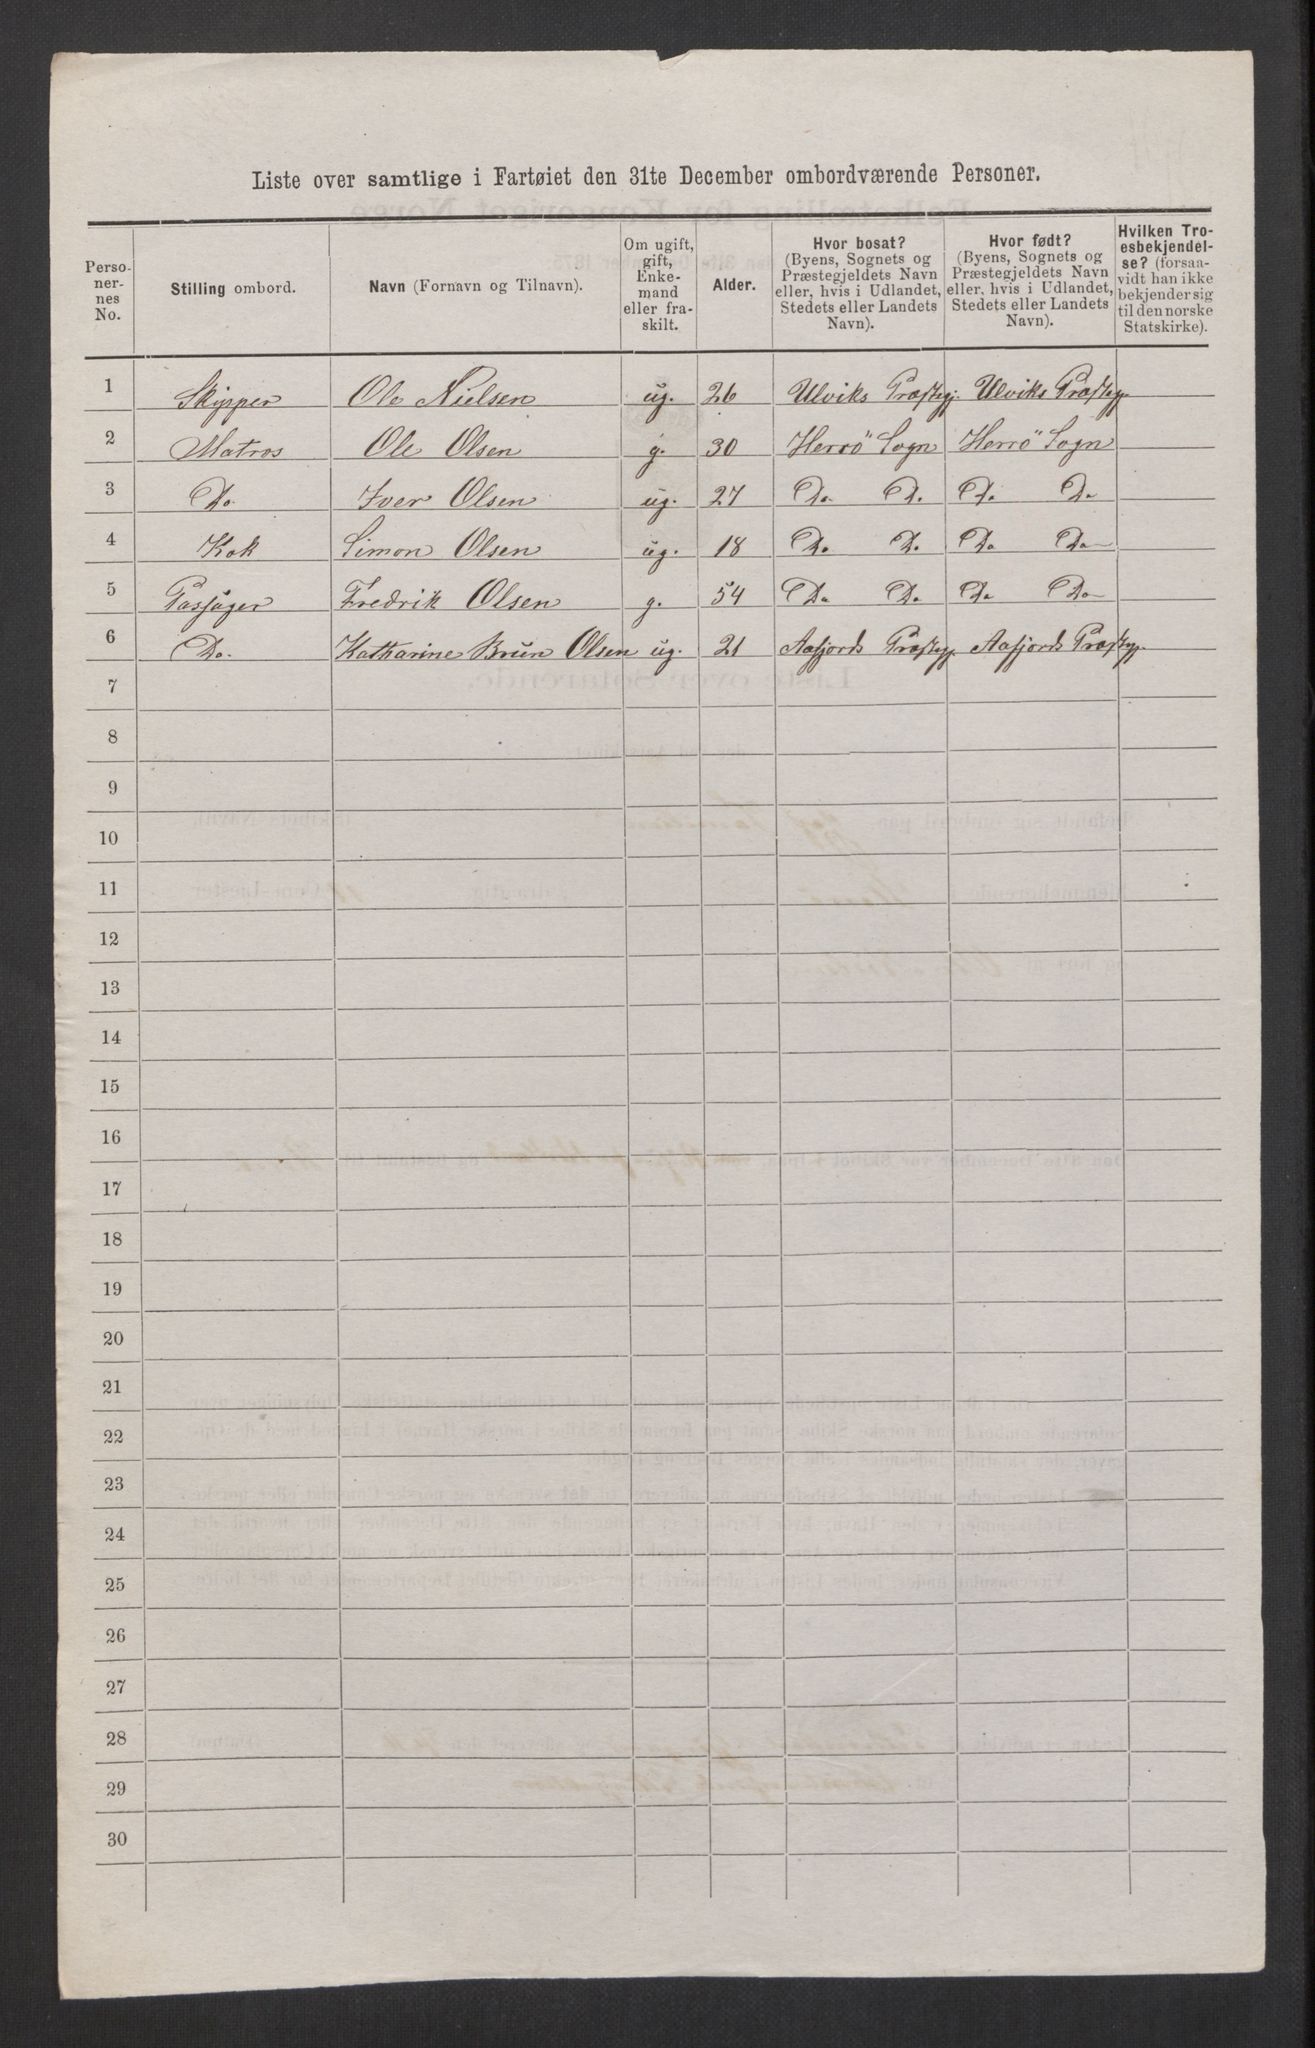 Liste over samtlige i Fartøiet den 31te December ombordværende Personer.
Perso-
ner-
nes
No.
Stilling ombord.
Navn (Fornavn og Tilnavn).
Om ugift,
gift,
Enke-
mand
eller fra-
skilt.
Alder.
Hvor bosat?
(Byens, Sognets og
Præstegjeldets Navn
eller, hvis i Udlandet,
Stedets eller Landets
Navn).
Hvor født?
(Byens, Sognets og
Præstegjeldets Navn
eller, hvis i Udlandet,
Stedets eller Landets
Navn).
Hvilken Tro-
esbekjendel-
se? (forsaa-
vidt han ikke
bekjender sig
til den norske
Statskirke).
1 Skipper Ole Nielsen ug. 26 Ulviks Præstegj. Ulviks Præstegj.
2 Matros Ole Olsen g. 30 Herrö Sogn Herrö Sogn
3 Do. Iver Olsen ug. 27 Do. Do. Do. Do
4 Kok Simon Olsen ug. 18 Do. Do. Do. Do
5 Passager Fredrik Olsen g. 54 Do. Do. Do. Do
6 Do. Katharine Brun Olsen ug. 21 Aafjords Præstegj. Aafjords Præstegj.
7
8
9
10
11
12
13
14
15
16
17
18
19
20
21
22
23
24
25
26
27
28
29
30